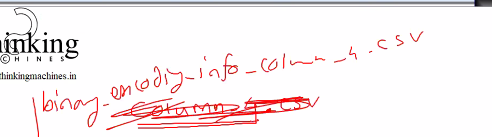 inking
CHINES
thinkingmachines.in
binary_encodig_info_column_4.csv
column .csv